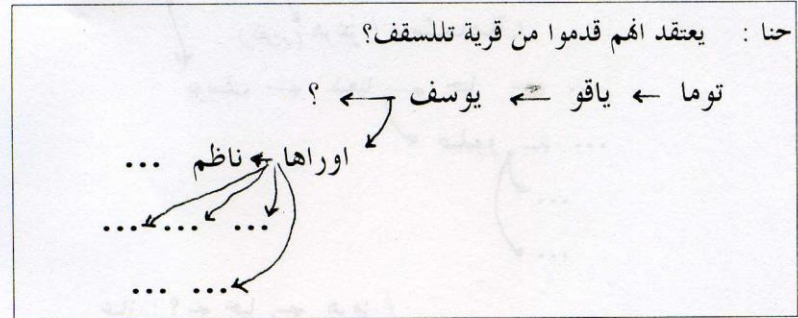 حنا : يعتقد انهم قدموا من قرية تللسقف؟
توما ← ياقو ← يوسف ← ؟
اوراها ← ناظم ...
... ... ...
... ...